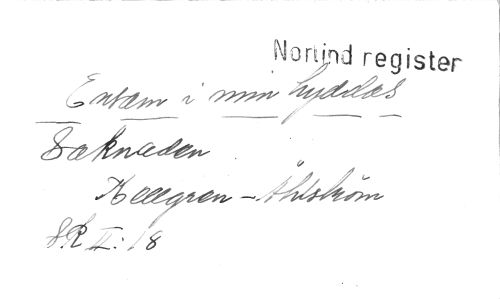 Nortind register
Ensam i min hyddas
Saknaden
Kellgren - Åhlström
SR II: 18